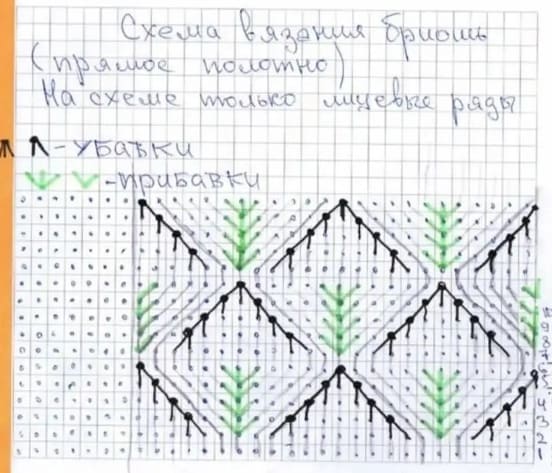 Схема вязания бриошь
(прямое полотно)
На схеме только лицевые ряды
- убавки
- прибавки